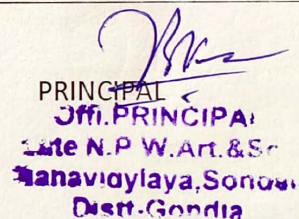 PRINCIPAL
Offi.PRINCIPAL
Late N.P.W.Art.&Sc
Mahavidylaya,Sonda
Distt-Gondia